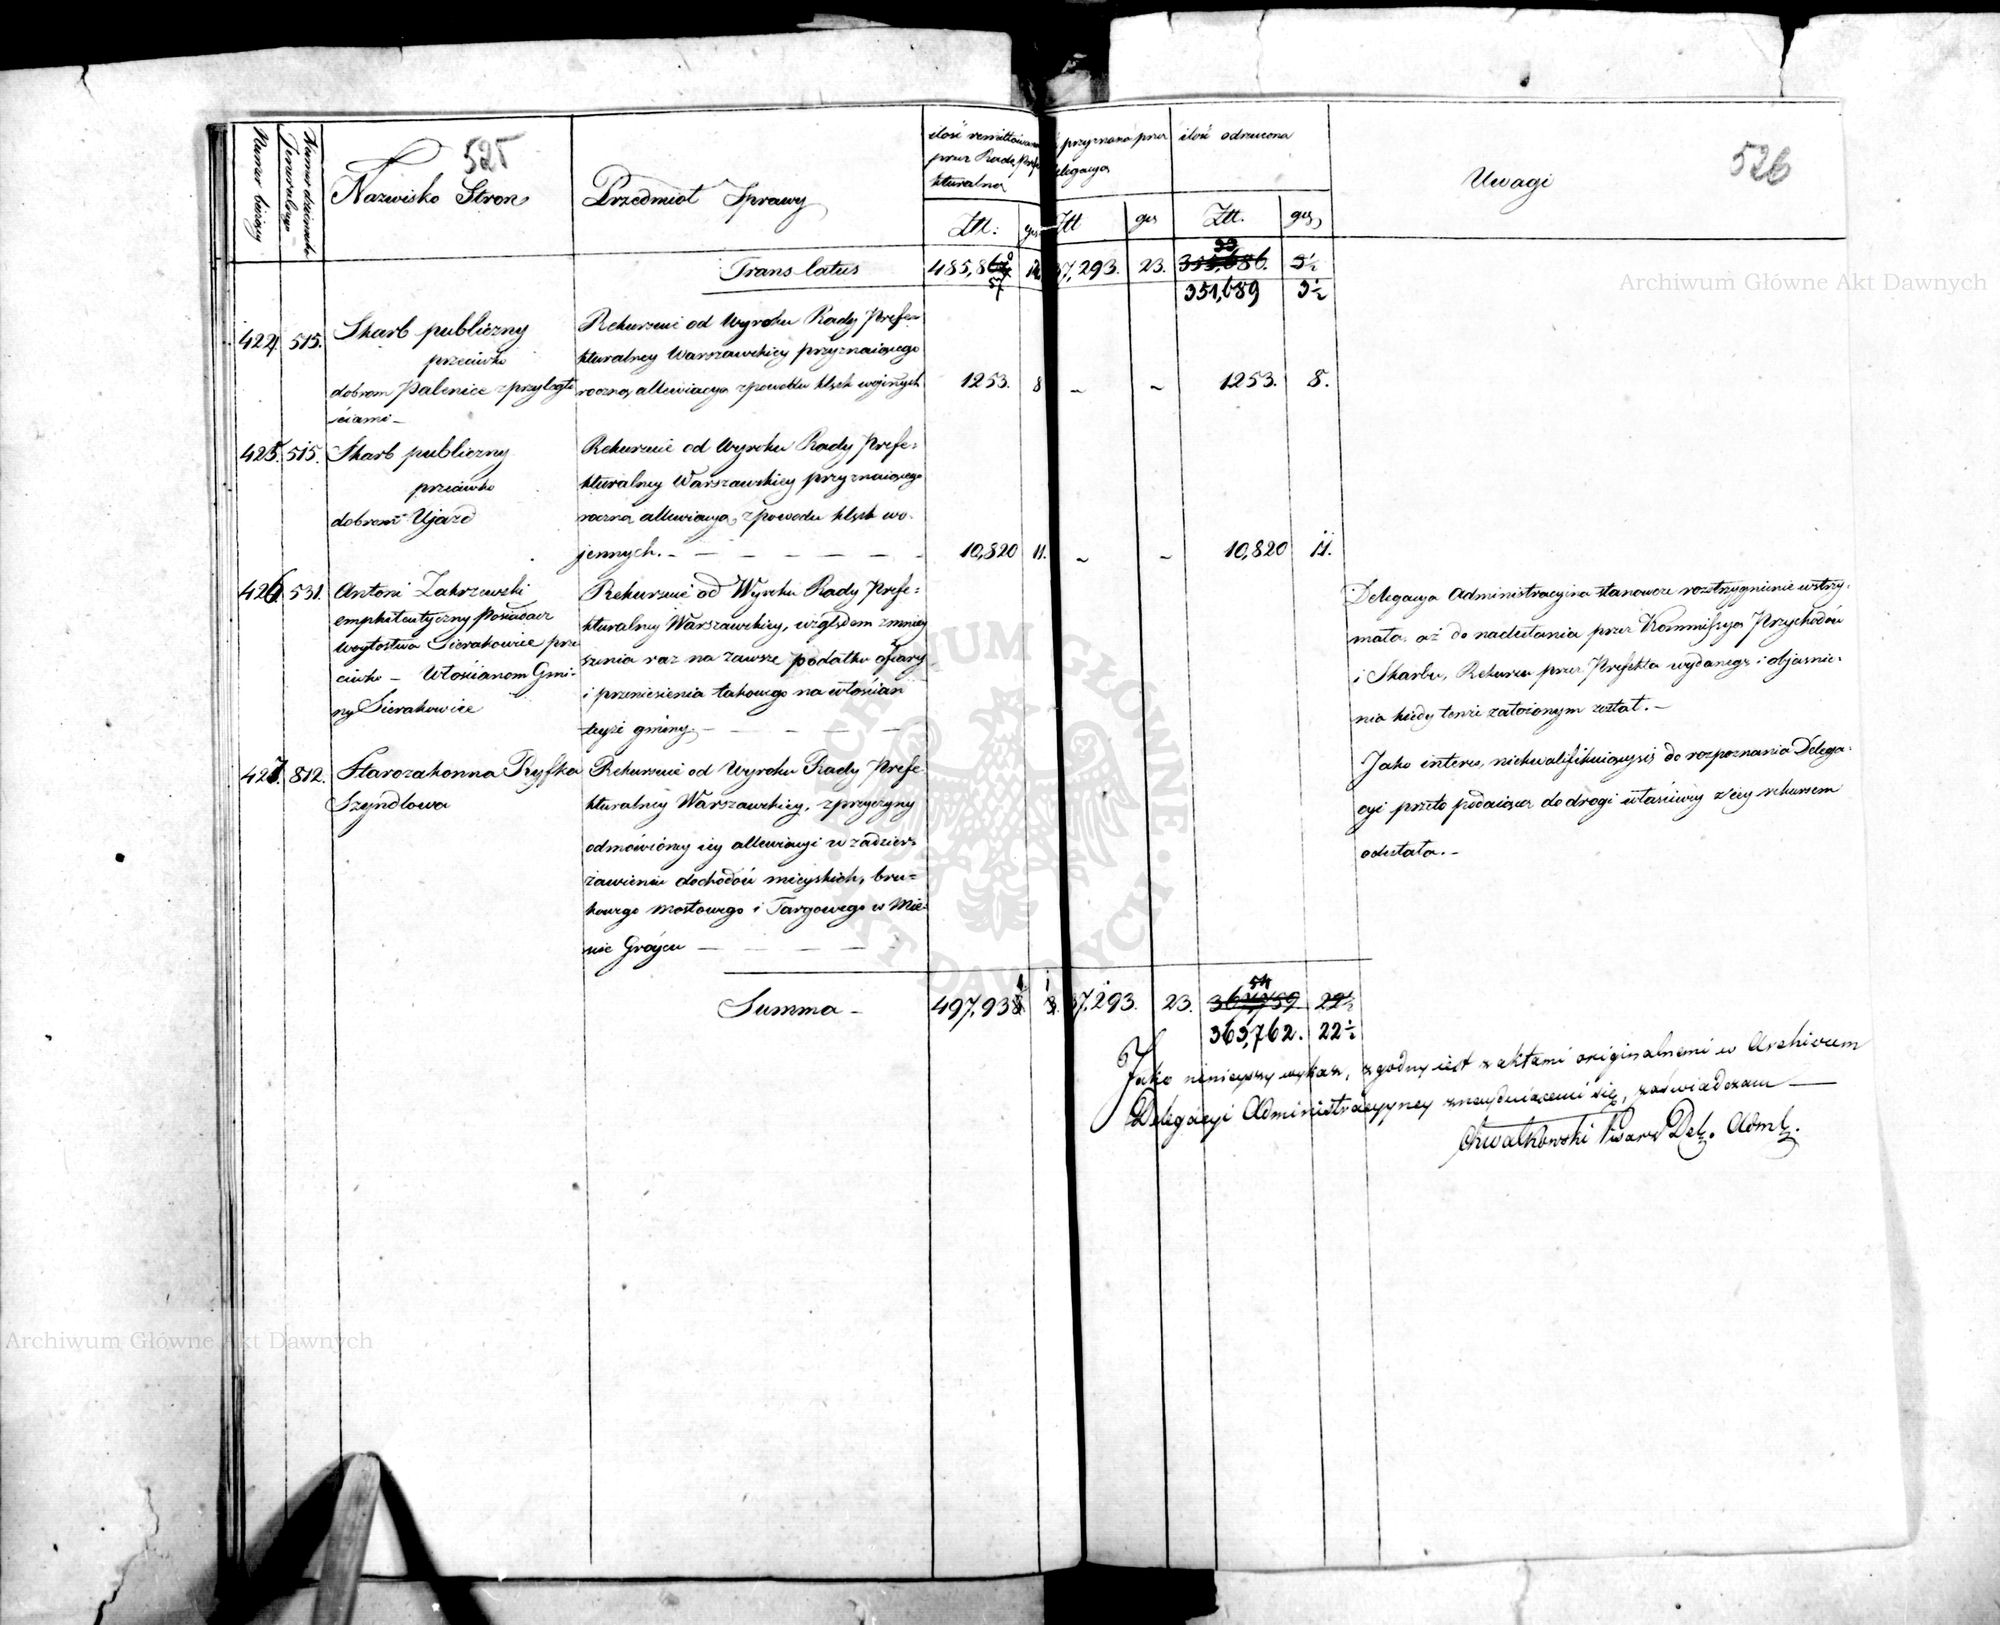 525
526
Numer bieżący
Numer dziennika Jeneralnego
Nazwisko Stron
Przedmiot Sprawy
ilość remittowana
przez Radę Prefe
kturalną
przyznana przez
elegacya
ilość odrzucona
Uwagi
Ztt. gr Ztt gr Ztt. gr
Translatus 485,86 37,293. 23. 355,686. 3½
351,689 3½
424 515. Skarb publiczny
przeciwko
dobrom Palenice z przyległo
ściami –
Rekursuie od Wyroku Rady Prefe=
kturalney Warszawskiey przyznaiącego
roczną allewiacyą z powodu klęsk wojennych 1253. 8 – – 1253. 8.
425. 515. Skarb publiczny
przeciwko
dobrom Ujazd
Rekursuie od Wyroku Rady Prefe=
kturalney Warszawskiey przyznaiącego
roczną allewiacyą z powodu klęsk wo=
jennych. – – – – – – – 10,820 11. – – 10,820 11.
426. 531. Antoni Zakrzewski
emphiteutyczny Posiadacz
Woytostwa Sierakowice prze
ciwko – Włościanom Gmi=
ny Sierakowice
Rekursuie od Wyroku Rady Prefe=
kturalney Warszawskiey, względem zmniey
szenia raz na zawsze podatku ofiary
i przeniesienia takowego na włościan
teyże gminy. – – – – –
Delegacya Administracyina stanowcze rozstrzygnienie wstrzy=
mała, aż do nadesłania przez Kommissyą Przychodów
i Skarbu, Rekursu przez Prefekta wydanego i objaśnie=
nia kiedy tenże założonym został. –
427. 812. Starozakonna Ryfka
Szyndlowa
Rekursuie od Wyroku Rady Prefe
kturalney Warszawskiey, z przyczyny
odmówioney iey allewiacyi w zadzier=
żawieniu dochodów mieyskich, bru=
kowego mostowego i Targowego w Mie=
ście Gróycu – – – – –
Jako interes, niekwalifikuiący się do rozpoznania Delega=
cyi przeto podaiącą do drogi właściwey z iey rekursem
odesłała. –
Summa – 497,93 37,293. 23. 22½
363,762. 22½
Jako ninieyszy wykaz, zgodny iest z aktami originalnemi w Archivum
Delegacyi Administracyyney znayduiącemi się, zaświadczam —
Chwalkowski Pisarz Del. Adml.
Archiwum Główne Akt Dawnych
Archiwum Główne Akt Dawnych
ARCHIWUM GŁÓWNE AKT DAWNYCH